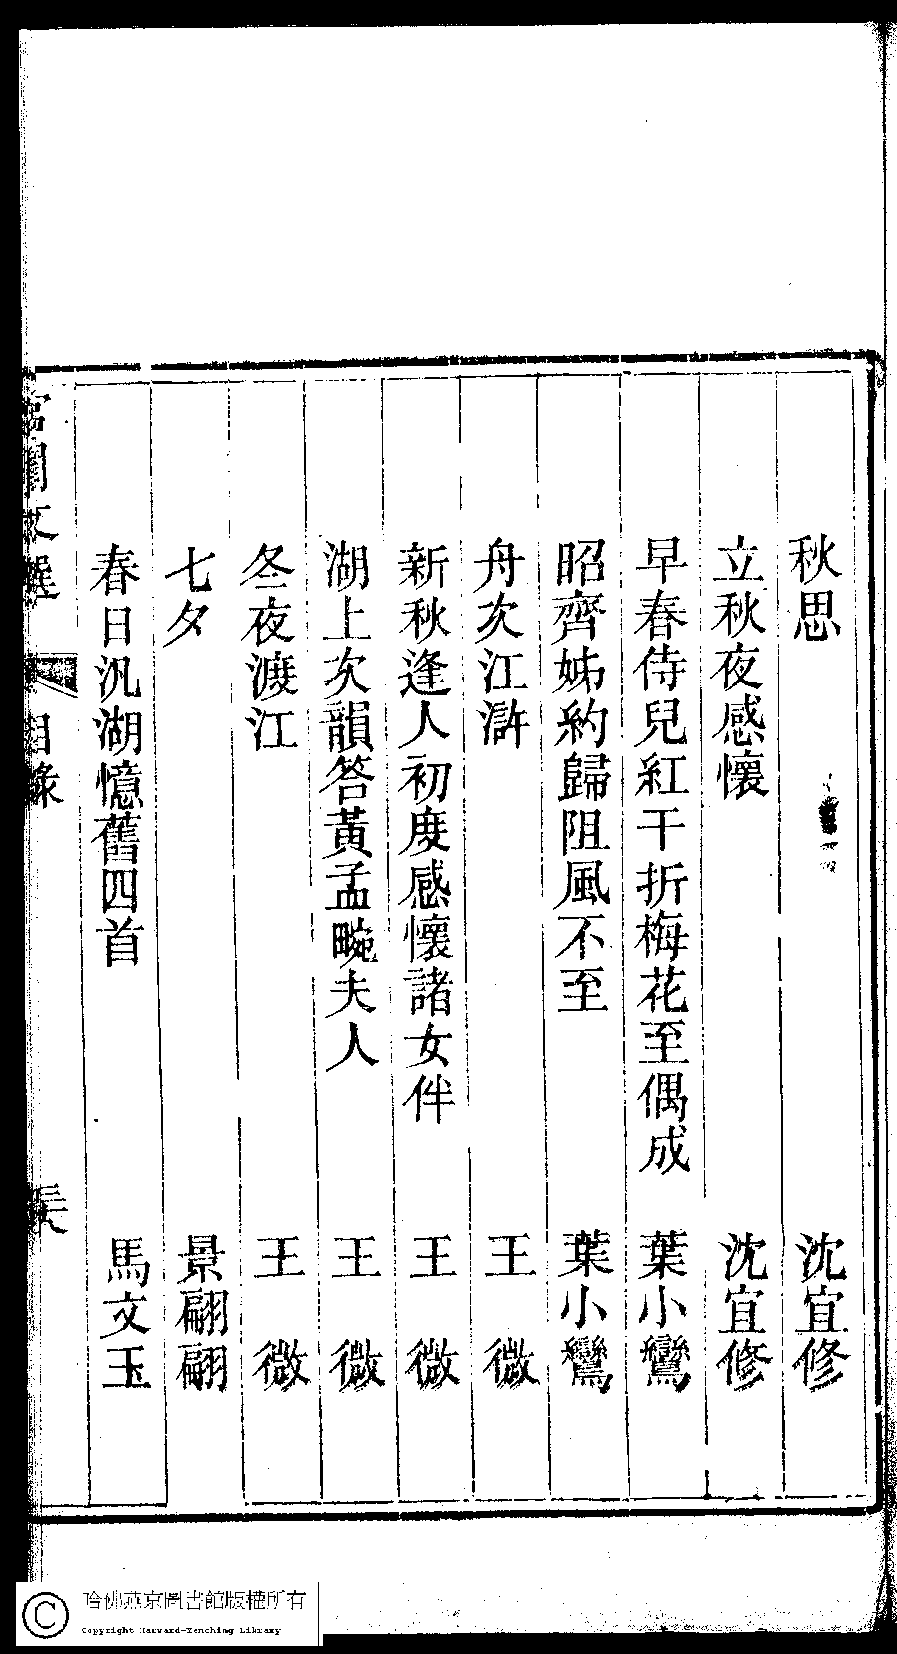 秋思 沈宜修
立秋夜感懷 沈宜修
早春侍兒紅干折梅花至偶成 葉小鸞
昭齊姊約歸阻風不至 葉小鸞
舟次江滸 王微
新秋逢人初度感懷諸女伴 王微
湖上次韻答黃孟畹夫人 王微
冬夜渡江 王微
七夕 景翩翩
春日汎湖憶舊四首 馬文玉
宮閨文選 目錄
哈佛燕京圖書館版權所有
Copyright Harvard-Yenching Library